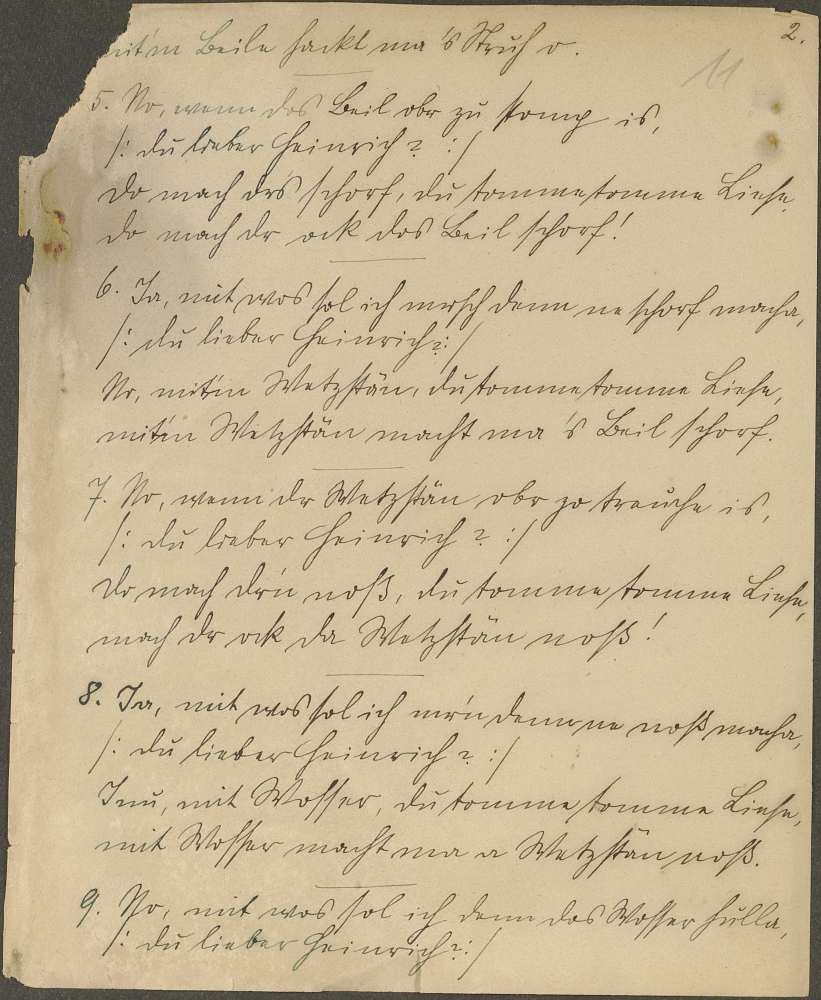 2.
11
mit'm Beile hackt ma 's Struh o.
5. No, wenn das Beil obr zu stomp is,
/: du lieber Heinrich? :/
Do mach drs schorf, du tomme tomme Liese,
do mach dr ock das Beil schorf!
6. Ja, mit wos sol ich mersch denn ne schorf macha,
/: du lieber Heinrich?:/
No, mit'm Wetzstän, du tomme tomme Liese,
mit'm Wetzstän macht ma 's Beil schorf.
7. No, wenn dr Wetzstän obr zo treuche is,
/: du lieber Heinrich? :/
Do mach dr'n noß, du tomme tomme Liese,
mach dr ock da Wetzstän noß!
8. Ja, mit wos sol ich mr'n denn ne noß macha,
/: du lieber Heinrich? :/
Inu, mit Wosser, du tomme tomme Liese,
mit Wosser macht ma a Wetzstän noß.
9. No, mit wos sol ich denn das Wosser hulla,
/: du lieber Heinrich?:/